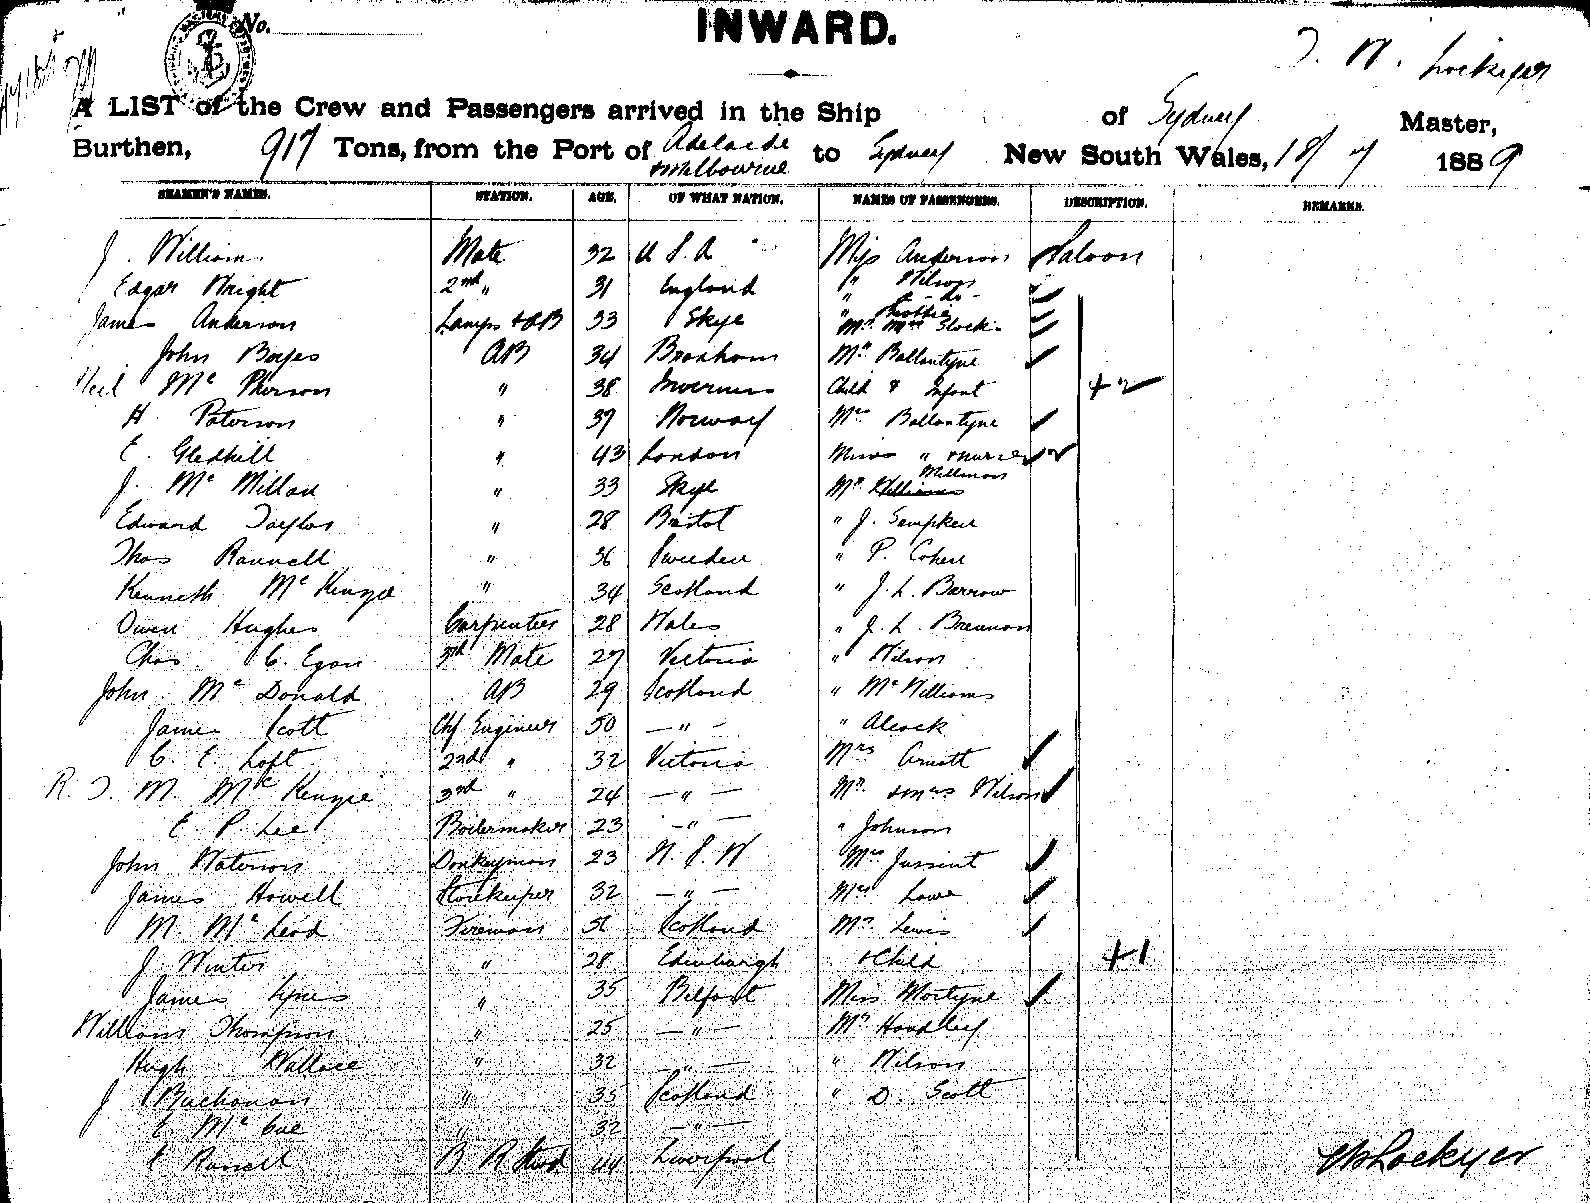 No.
INWARD.
T. W. Lockyer
A LIST of the Crew and Passengers arrived in the Ship of Sydney Master,
Burthen, 917 Tons, from the Port of Adelaide & Melbourne to Sydney New South Wales, 18/7 1889
SEAMEN'S NAMES. STATION. AGE. OF WHAT NATION. NAMES OF PASSENGERS. DESCRIPTION. REMARKS.
J. William Mate 32 U S A Miss Anderson Saloon
Edgar Wright 2nd " 31 England " Wilson
" - do -
James Anderson Lamps & AB 33 Skye Mr. Mrs Stock
John Boyes AB 34 Mrs Ballantyne
Neil Mc Pherson " 38 Inverness Child & Infant +2
H. Paterson " 39 Norway Mrs Ballantyne
E. Gledhill " 43 London Miss " & nurse
J. Mc Millan " 33 Skye Mr. Millman
Edward Taylor " 28 Bristol " J.
Thos Rannell " 36 Sweden " P. Cohen
Kenneth Mc Kenzie " 34 Scotland " J. L. Barrow
Owen Hughes Carpenter 28 Wales " J. L. Brennan
Chas C. Egan 3rd Mate 27 Victoria " Wilson
John Mc Donald AB 29 Scotland " McWilliams
James Scott Chf Engineer 50 — " — " Alcock
C. E. Loft 2nd " 32 Victoria Mrs Arnott
R. T. M. McKenzie 3rd " 24 — " — Mr. & Mrs Wilson
E. P. Lee Boilermaker 23 — " — " Johnson
John Waterson Donkeyman 23 N. S. W Mrs
James Howell Storekeeper 32 — " — Mrs Lowe
M. McLeod Fireman Scotland Mrs Lewis
J. Winter " 28 Edinburgh & Child +1
James Lynes " 35 Belfast Miss Martyne
William Thompson " 25 — " — Mr Hoadley
Hugh Wallace " 32 — " — " Wilson
J Buchanan " 35 Scotland " D. Scott
E McCue " 32 — " —
E Russell Liverpool
Lockyer